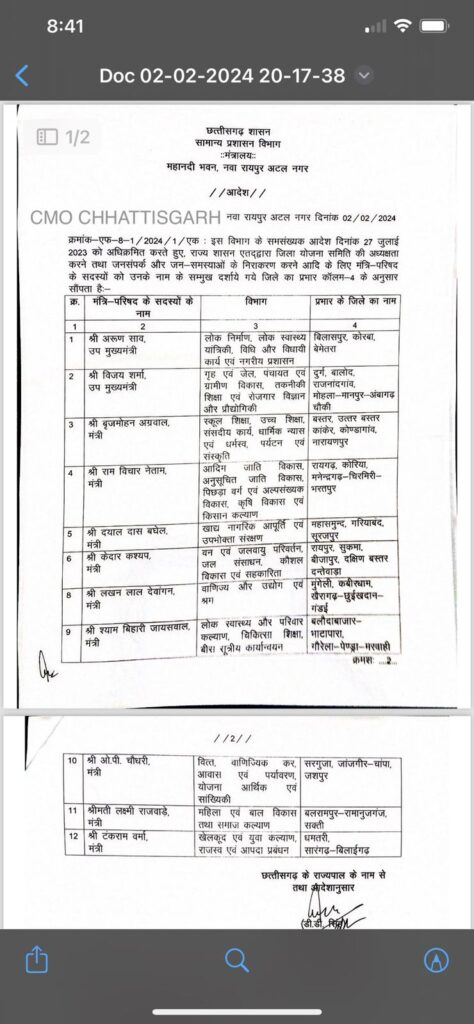 8:41
Doc 02-02-2024 20-17-38
1/2
छत्तीसगढ़ शासन
सामान्य प्रशासन विभाग
::मंत्रालय::
महानदी भवन, नवा रायपुर अटल नगर
//आदेश//
CMO CHHATTISGARH नवा रायपुर अटल नगर दिनांक 02/02/2024
क्रमांक–एफ–8–1/2024/1/एक : इस विभाग के समसंख्यक आदेश दिनांक 27 जुलाई
2023 को अधिक्रमित करते हुए, राज्य शासन एतद्द्वारा जिला योजना समिति की अध्यक्षता
करने तथा जनसंपर्क और जन–समस्याओं के निराकरण करने आदि के लिए मंत्रि–परिषद
के सदस्यों को उनके नाम के सम्मुख दर्शाये गये जिले का प्रभार कॉलम–4 के अनुसार
सौंपता है:–
क्र. मंत्रि–परिषद के सदस्यों के विभाग प्रभार के जिले का नाम
नाम
1 2 3 4
1 श्री अरूण साव, लोक निर्माण, लोक स्वास्थ्य बिलासपुर, कोरबा,
उप मुख्यमंत्री यांत्रिकी, विधि और विधायी बेमेतरा
कार्य एवं नगरीय प्रशासन
2 श्री विजय शर्मा, गृह एवं जेल, पंचायत एवं दुर्ग, बालोद,
उप मुख्यमंत्री ग्रामीण विकास, तकनीकी राजनांदगांव,
शिक्षा एवं रोजगार विज्ञान मोहला–मानपुर–अंबागढ़
और प्रौद्योगिकी चौकी
3 श्री बृजमोहन अग्रवाल, स्कूल शिक्षा, उच्च शिक्षा, बस्तर, उत्तर बस्तर
मंत्री संसदीय कार्य, धार्मिक न्यास कांकेर, कोण्डागांव,
एवं धर्मस्व, पर्यटन एवं नारायणपुर
संस्कृति
4 श्री राम विचार नेताम, आदिम जाति विकास, रायगढ़, कोरिया,
मंत्री अनुसूचित जाति विकास, मनेन्द्रगढ़–चिरमिरी–
पिछड़ा वर्ग एवं अल्पसंख्यक भरतपुर
विकास, कृषि विकास एवं
किसान कल्याण
5 श्री दयाल दास बघेल, खाद्य नागरिक आपूर्ति एवं महासमुन्द, गरियाबंद,
मंत्री उपभोक्ता संरक्षण सूरजपुर
6 श्री केदार कश्यप, वन एवं जलवायु परिवर्तन, रायपुर, सुकमा,
मंत्री जल संसाधन, कौशल बीजापुर, दक्षिण बस्तर
विकास एवं सहकारिता दन्तेवाड़ा
8 श्री लखन लाल देवांगन, वाणिज्य और उद्योग एवं मुंगेली, कबीरधाम,
मंत्री श्रम खैरागढ़–छुईखदान–
गंडई
9 श्री श्याम बिहारी जायसवाल, लोक स्वास्थ्य और परिवार बलौदाबाजार–
मंत्री कल्याण, चिकित्सा शिक्षा, भाटापारा,
बीस सूत्रीय कार्यान्वयन गौरेला–पेण्ड्रा–मरवाही
क्रमशः ...2...
//2//
10 श्री ओ.पी. चौधरी, वित्त, वाणिज्यिक कर, सरगुजा, जांजगीर–चांपा,
मंत्री आवास एवं पर्यावरण, जशपुर
योजना आर्थिक एवं
सांख्यिकी
11 श्रीमती लक्ष्मी राजवाड़े, महिला एवं बाल विकास बलरामपुर–रामानुजगंज,
मंत्री तथा समाज कल्याण सक्ती
12 श्री टंकराम वर्मा, खेलकूद एवं युवा कल्याण, धमतरी,
मंत्री राजस्व एवं आपदा प्रबंधन सारंगढ़–बिलाईगढ़
छत्तीसगढ़ के राज्यपाल के नाम से
तथा आदेशानुसार
(डी.डी. सिंह)